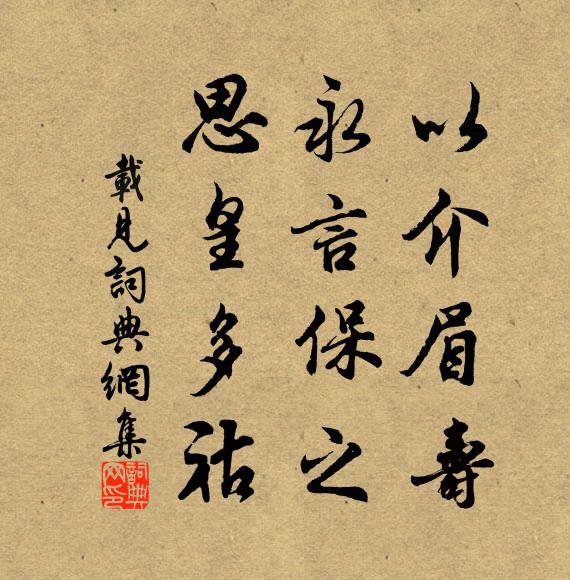 以介眉壽
永言保之
思皇多祜
載見詞典網集
詞典网印